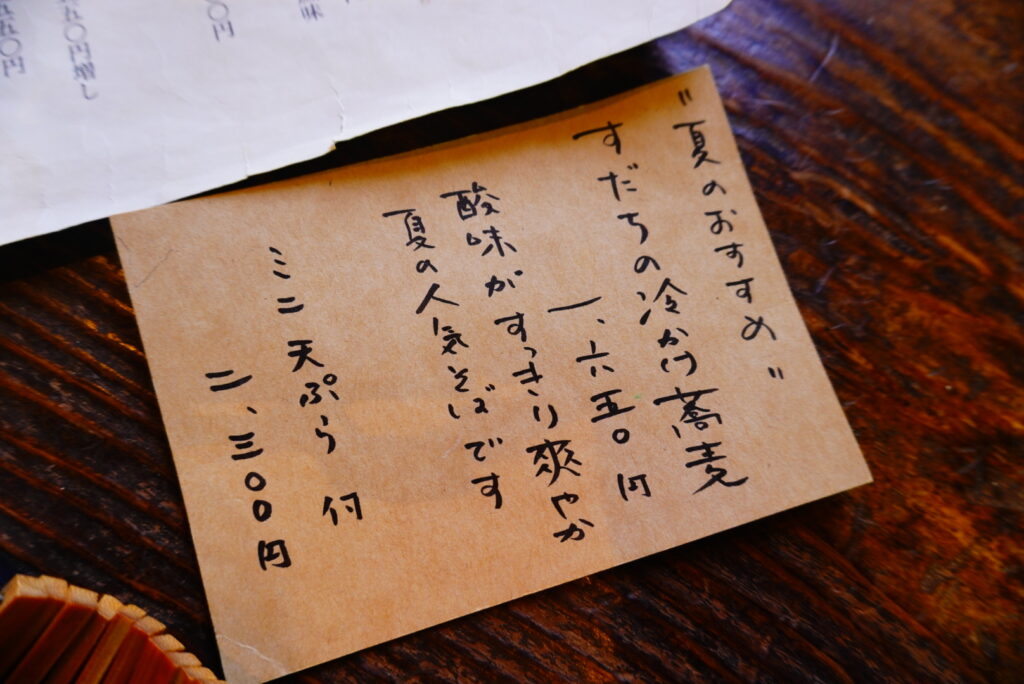 "夏のおすすめ"
すだちの冷かけ蕎麦
一、六五〇円
酸味がすっきり爽やか
夏の人気そばです
ミニ天ぷら 付
二、三〇〇円
〇円
五〇円増し
五〇円